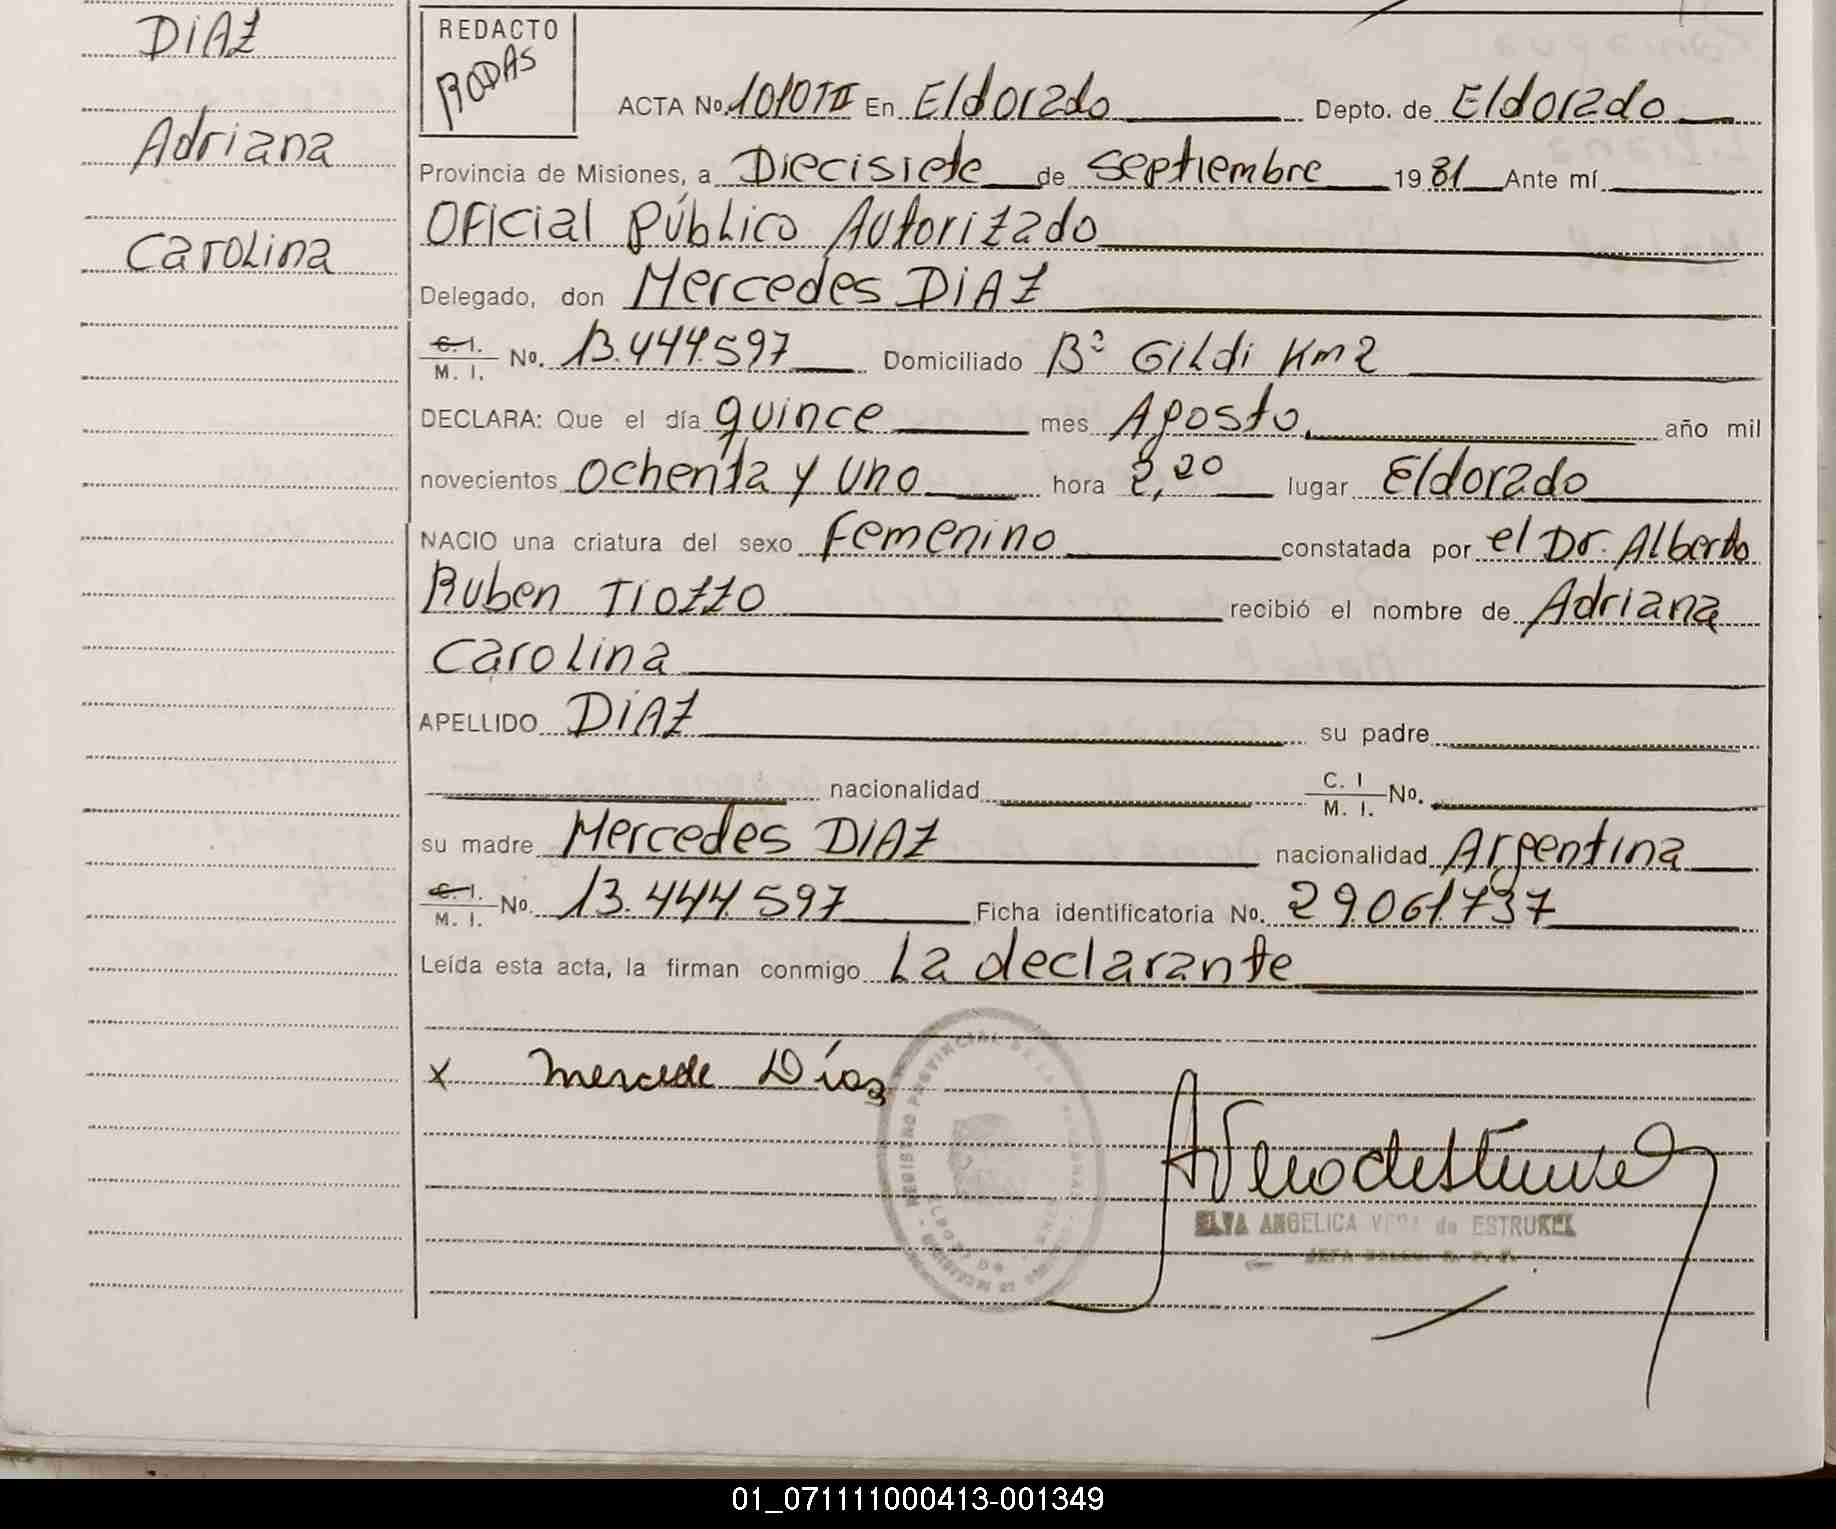 DIAZ
Adriana
Carolina
REDACTO
RODAS
ACTA No. 1010 TII En Eldorado Depto. de Eldorado
Provincia de Misiones, a Diecisiete de septiembre 1981 Ante mí
Oficial Público Autorizado
Delegado, don Mercedes DIAZ
C. I. / M. I. No. 13.444.597 Domiciliado Bº Gildi Km 2
DECLARA: Que el día quince mes Agosto año mil
novecientos ochenta y uno hora 2,20 lugar Eldorado
NACIO una criatura del sexo femenino constatada por el Dr. Alberto
Ruben Tiozzo recibió el nombre de Adriana
Carolina
APELLIDO DIAZ su padre
nacionalidad C. I / M. I. No.
su madre Mercedes DIAZ nacionalidad Argentina
C. I. / M. I. No. 13.444.597 Ficha identificatoria No. 29.061.737
Leída esta acta, la firman conmigo La declarante
x mercede Díaz
ELVA ANGELICA VERA de ESTRUKEL
01_071111000413-001349